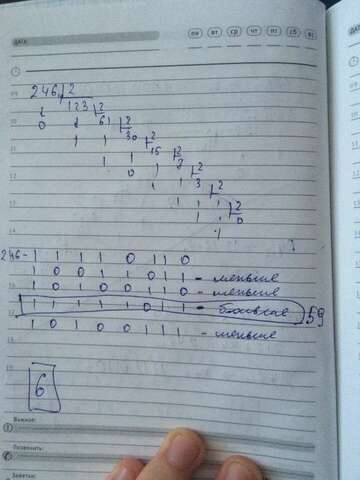 ДАТА пн вт ср чт пт сб вс
246 2
1 123 2
0 1 61 2
1 1 30 2
1 1 15 2
0 1
1 1 3 2
246- 1 1 1 1 0 1 1 0
1 0 0 1 1 0 1 1 - меньше
1 0 1 0 0 1 1 0 - меньше
1 1 1 1 1 0 1 1 - больше 59
1 0 1 0 0 1 1 1 - меньше
6
Важное:
Позвонить:
Заметки: